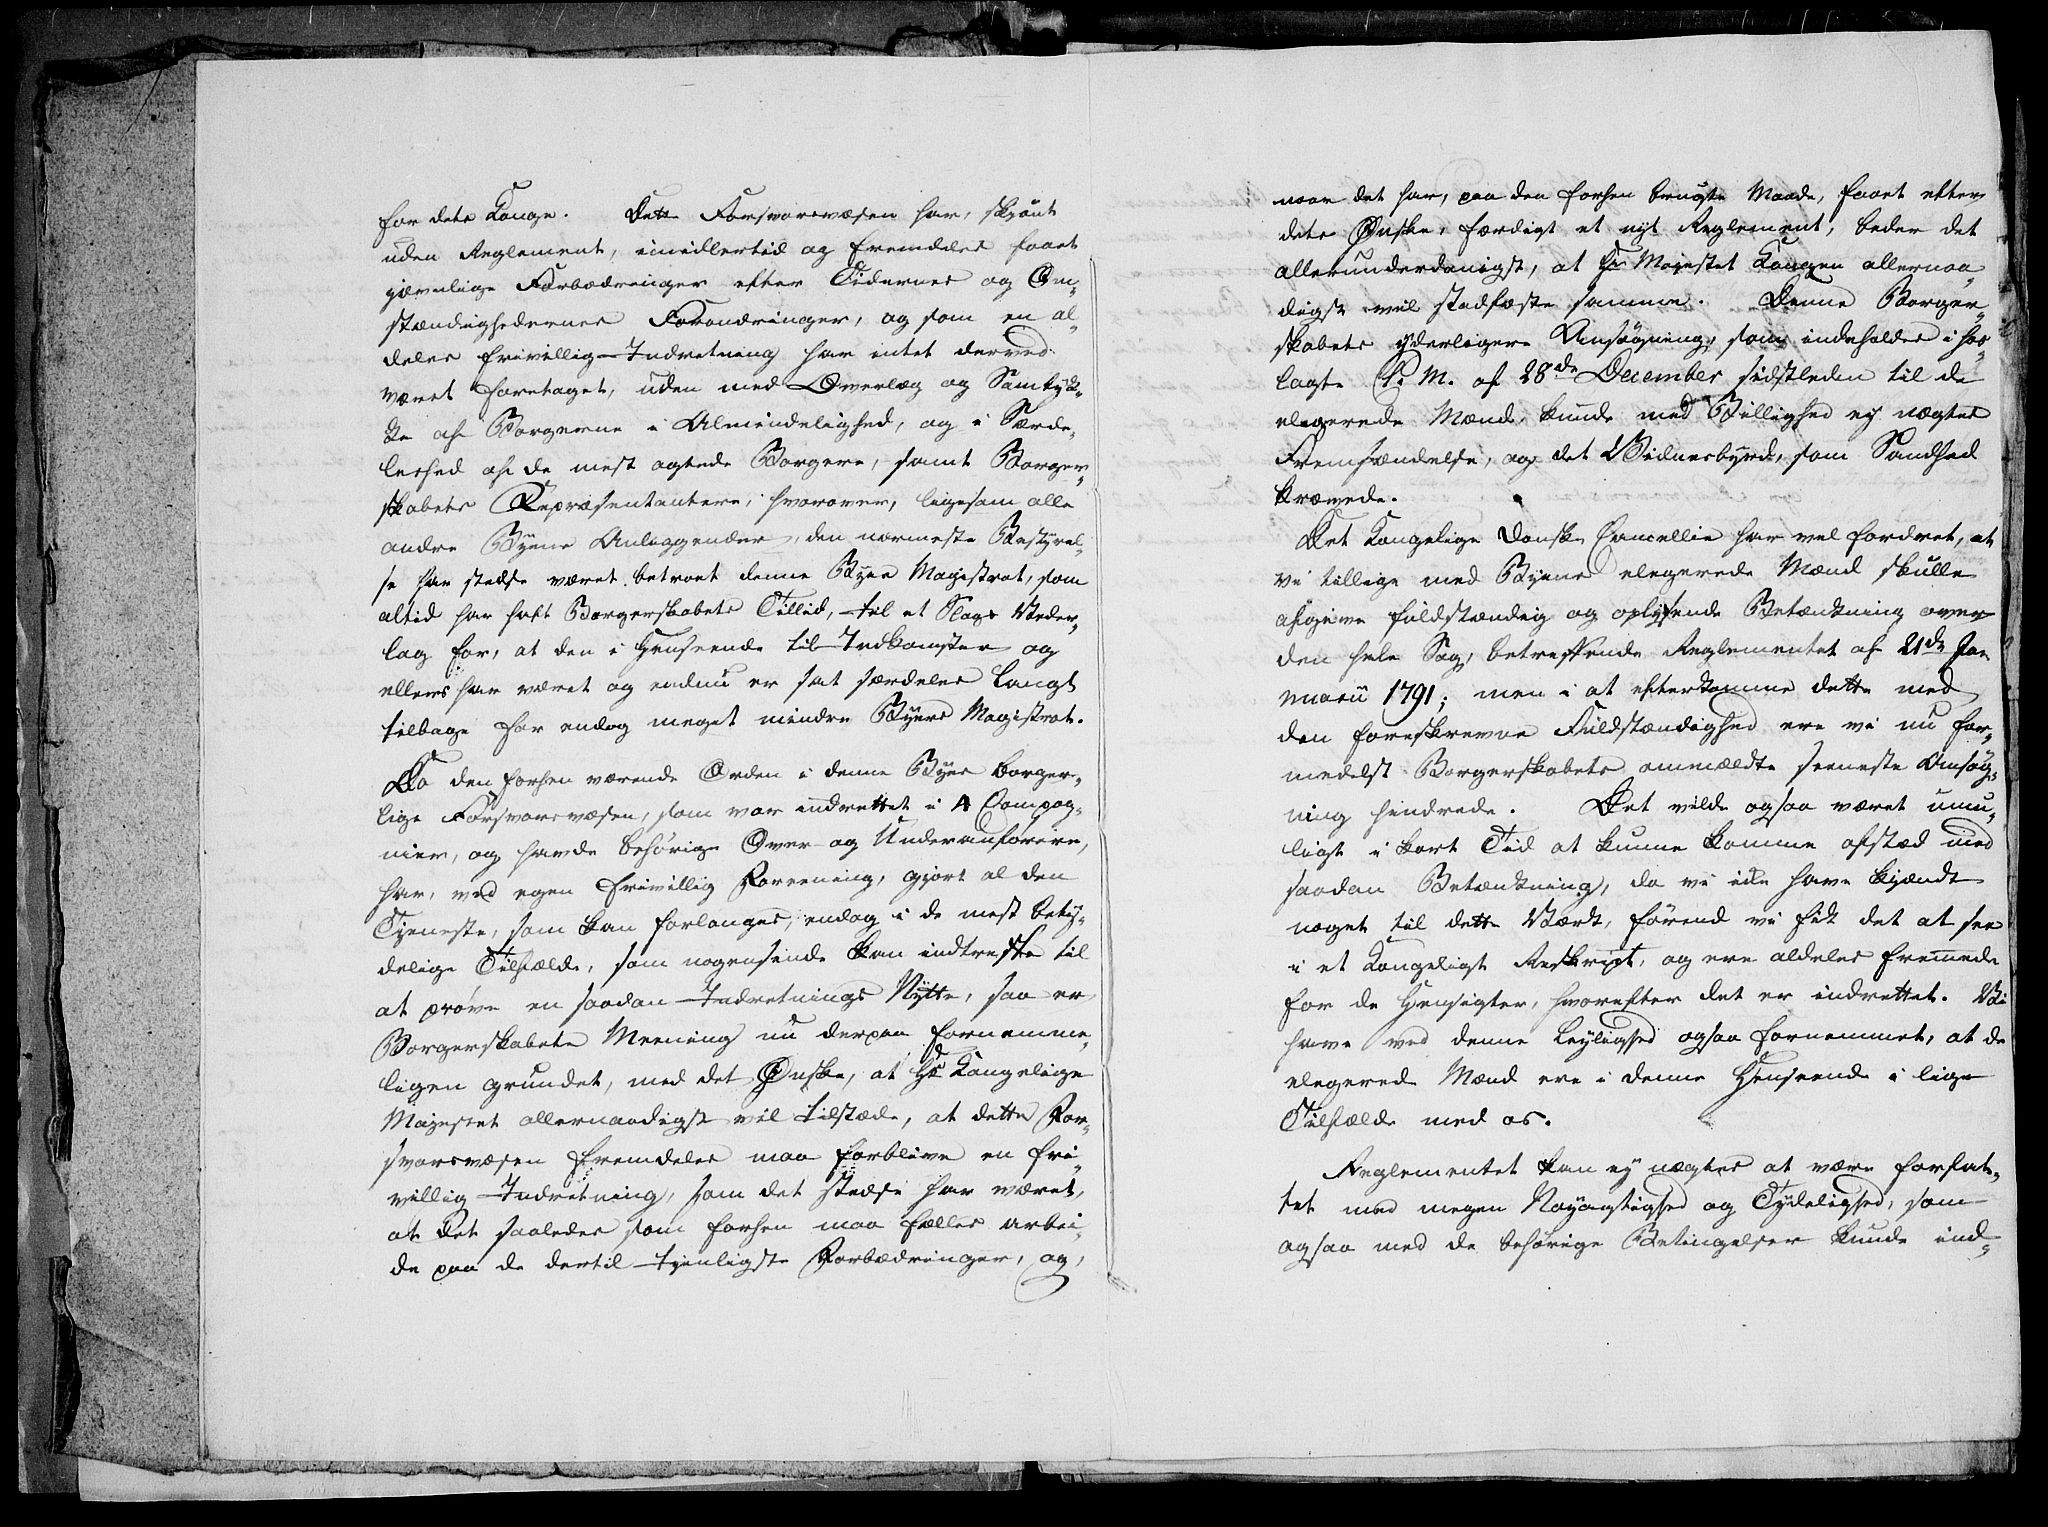 for dets Konge. Dette Forsvarsvæsen har, skjönt
uden Reglement, imidlertid og fremdeles faaet
jævnlige Forbædringer efter Tidernes og Om-
stændighedernes Forandringer, og som en al-
deles frivillig Indretning har intet derved
været foretaget, uden med Overlæg og Samtyk-
ke af Borgerne i Almindelighed, og i Særde-
leshed af de mest agtede Borgere, samt Borger-
skabets Repræsentantere, hvorover, ligesom alle
andre Byens Anliggender, den nærmeste Bestyrel-
se har stedse været betroet denne Byes Magistrat, som
altid har haft Borgerskabets Tillid, til et Slags Veder-
lag for, at den i Henseende til Indkomster og
ellers har været og endnu er sat særdeles langt
tilbage for endog meget mindre Byers Magistrat.
Da den forhen værende Orden i denne Byes borger-
lige Forsvarsvæsen, som var indrettet i 4 Compag-
nier, og havde behörige Over- og Underanförere,
har, ved egen frivillig Foreening, gjort al den
Tjeneste, som kan forlanges, endog i de mest bety-
delige Tilfælde, som nogensinde kan indtreffe til
at pröve en saadan Indretnings Nytte, saa er
Borgerskabets Meening nu derpaa fornemme-
ligen grundet, med det Önske, at Hs Kongelige
Majestet allernaadigst vil tilstæde, at dette For-
svarsvæsen fremdeles maa forblive en fri-
villig Indretning, som det stedse har været,
at det saaledes som forhen maa fælles arbei-
de paa de dertil tjenligste Forbædringer, og,
naar det har, paa den forhen brugte Maade, faaet efter
dets Önske, færdigt et nyt Reglement, beder det
allerunderdanigst, at Hs Majestet Kongen allernaa-
digst vil stadfæste samme. Denne Borger-
skabets yderligere Ansögning, som indeholdes i hos-
lagte P. M. af 28de December sidstleden til de
elegerede Mænd, kunde med Billighed ej nægtes
Fremsendelse, og det Vidnesbyrd, som Sandhed
krævede.
Det Kongelige danske Cancellie har vel fordret, at
vi tillige med Byens elegerede Mænd skulle
afgive fuldstændig og oplysende Betænkning over
den hele Sag, betreffende Reglementet af 21de Ja-
nuarii 1791; men i at efterkomme dette med
den foreskrevne Fuldstændighed ere vi nu for-
medelst Borgerskabets anmældte seeneste Ansög-
ning hindrede. Det vilde ogsaa været umu-
ligt i kort Tid at kunne komme afstæd med
saadan Betænkning, da vi ikke have kjændt
noget til dette Værk, förend vi fik det at see
i et Kongeligt Reskript, og ere aldeles fremmede
for de Hensigter, hvorefter det er indrettet. Vi
have ved denne Leylighed ogsaa fornemmet, at de
elegerede Mænd ere i denne Henseende i lige
Tilfælde med os.
Reglementet kan ej nægtes at være forfat-
tet med megen Nöyagtighed og Tydelighed, som
ogsaa med de behörige Betingelser kunde ind-